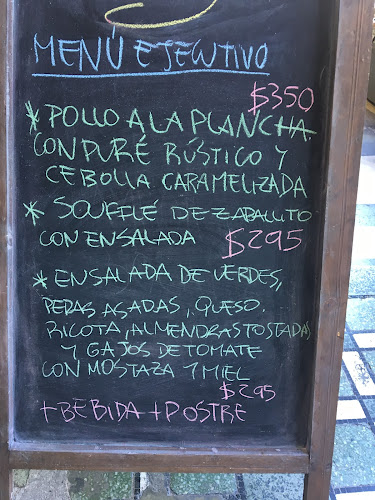 MENÚ EJECUTIVO
$350
* POLLO A LA PLANCHA
CON PURÉ RÚSTICO Y
CEBOLLA CARAMELIZADA
* SOUFFLÉ DE ZAPALLITO
CON ENSALADA $295
* ENSALADA DE VERDES,
PERAS ASADAS, QUESO.
RICOTA, ALMENDRAS TOSTADAS
Y GAJOS DE TOMATE
CON MOSTAZA Y MIEL
$295
+ BEBIDA + POSTRE